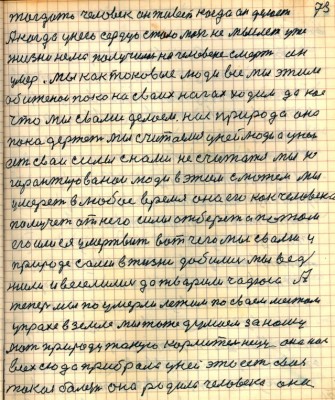 73
тогдать человек он живет когда он думает
А когда у него сердце стало мозг не мыслит уже
жизни нема получилося человека смерть он
умер. мы как таковые люди все мы этим
обижены пока на своих ногах ходим да кое
что мы с вами делаем. нас природа она
пока держит мы считаемся у ней люди а у ней
есть свои силы с нами не считаться мы не
гарантированы люди в этим сможем мы
умереть в любое время она его как человека
получит от него силы отберет а потом
его имея умертвит вот чего мы с вами у
природе сами в жизни добились мы вед
или и веселили до творили чадости А
теперь мы поумерли лежим по своем местам
у прахе в земле мы тоже думаем за нашу
мать природу такую кормительницу она нас
всех сюда прибрала у ней это есть свои
такая болезнь она родила человека она